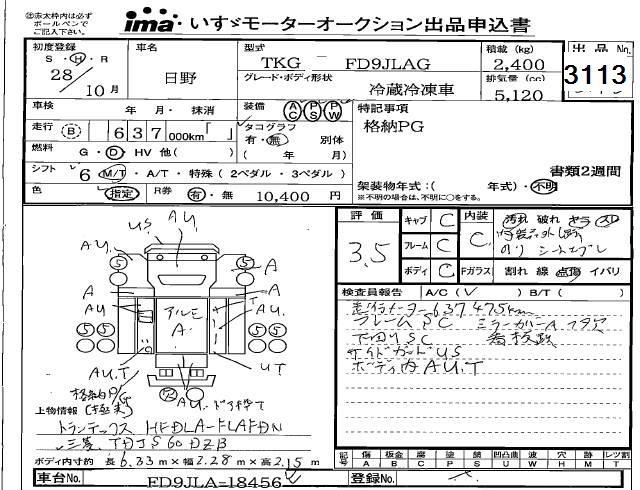 ㊟赤太枠内は必ず
ボールペンで
ご記入下さい。
ima いすゞモーターオークション出品申込書
初度登録 車名 型式 積載 (kg) 出品No
S・H・R TKG ー FD9JLAG 2,400
28 日野 グレード・ボディ形状 排気量(cc) 3113
10月 冷蔵冷凍車 5,120
車検 年 月・抹消 装備 AC PS PW 特記事項
走行 (B) 637 000km「 」 タコグラフ 格納PG
有・無 別体
燃料 G・D・HV 他( ) ( 年 月)
シフト 6 M/T・A/T・特殊(2ペダル・3ペダル) 書類2週間
架装物年式:( 年式)・不明
色 指定 R券 有・無 10,400 円 ※不明の場合は、不明に○をする。
評価 キャブ C 内装 汚れ 破れ キラ スレ
3.5 フレーム C C
シートスレ
ボディ C Fガラス 割れ 線 点傷 イバリ
検査員報告 A/C(レ) B/T( )
走行メーター637475km
フレームSC ミラーカバーA
下回りSC 看板跡
サイドガードUS
ボディ内AU.T
US AU.
AU.
5 5
A A
A A
AU T
アルミ
A
5 5
AU.T UT
格納P/G
AU.
上物情報
トランテックス HFDLA-FLAFDN
三菱 TDJS60DZB
ボディ内寸約 長6.33m×幅2.28m×高2.15m
記号 傷 板金 腐 塗 錆 凹凸曲 波 穴 跡 レツ割
A B C P S U W H M T
車台No. FD9JLA-18456 登録No.